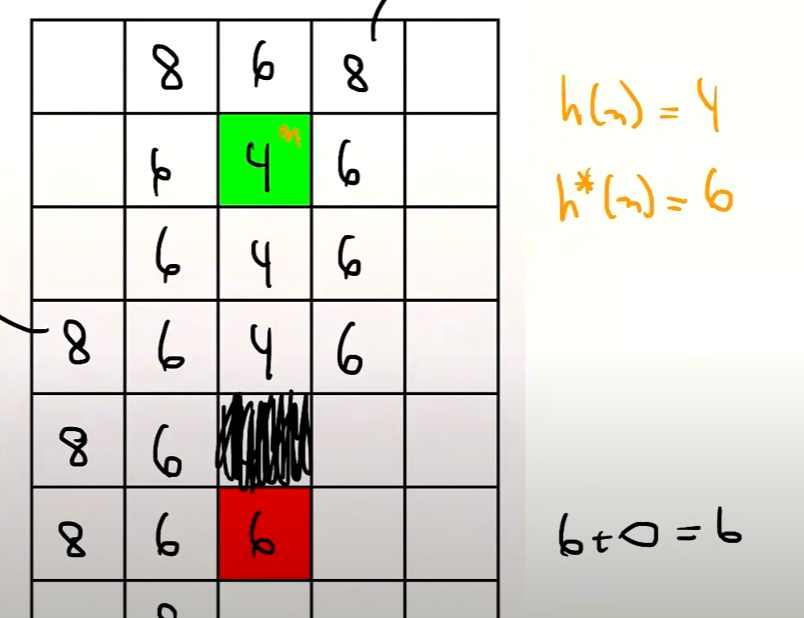 8 6 8
6 4 n 6
6 4 6
8 6 4 6
8 6
8 6 6
8
h(n) = 4
h*(n) = 6
6+0=6